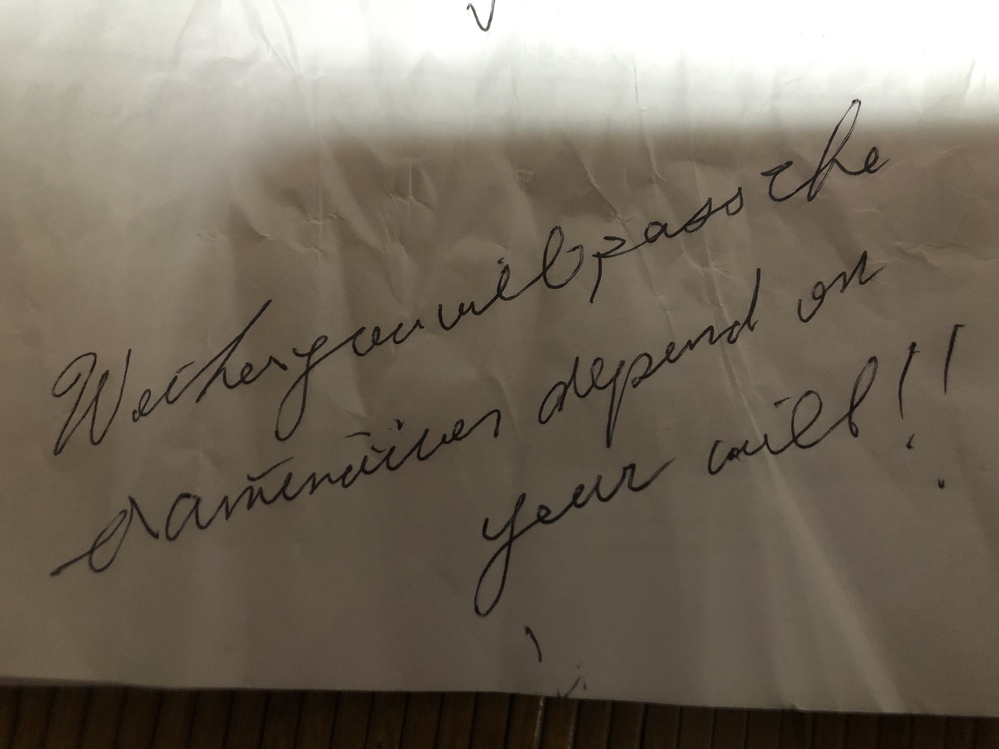 Wether you will pass the
examination depend on
your will!!